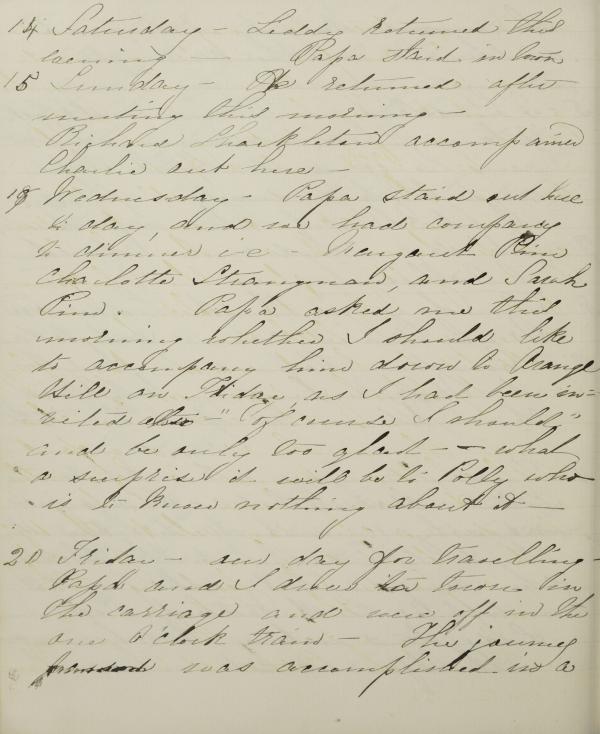 14 Saturday - Liddy returned this
evening - Papa staid in town
15 Sunday - He returned after
meeting this morning -
Richard Shackleton accompanied
Charlie out here -
18 Wednesday - Papa staid out here
to day, and we had company
to dinner i e - Margaret Pim
Charlotte Strangman, and Sarah
Pim. Papa asked me this
morning whether I should like
to accompany him down to Grange
Hill on Friday as I had been in-
vited also - "Of course I should,"
and be only too glad - - what
a surprise it will be to Polly who
is to know nothing about it -
20 Friday - our day for travelling -
Papa and I drove to town in
the carriage and were off in the
one O'clock train - The journey
was accomplished in a